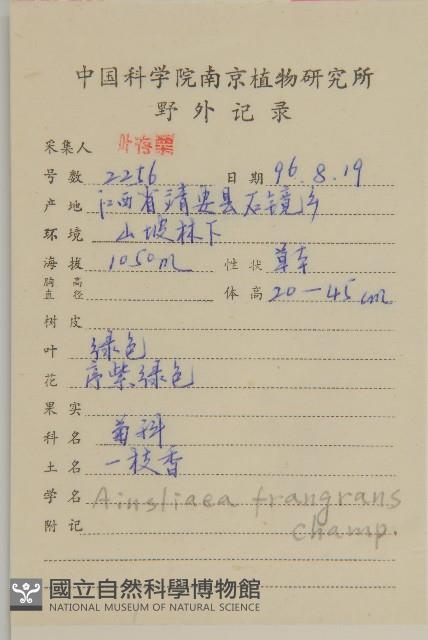 中国科学院南京植物研究所
野外记录
采集人 叶存粟
号数 2256 日期 96.8.19
产地 江西省靖安县石镜乡
环境 山坡林下
海拔 1050m 性状 草本
胸高直径 体高 20—45cm
树皮
叶 绿色
花 序紫绿色
果实
科名 菊科
土名 一枝香
学名 Ainsliaea frangrans
Champ.
附记
國立自然科學博物館
NATIONAL MUSEUM OF NATURAL SCIENCE